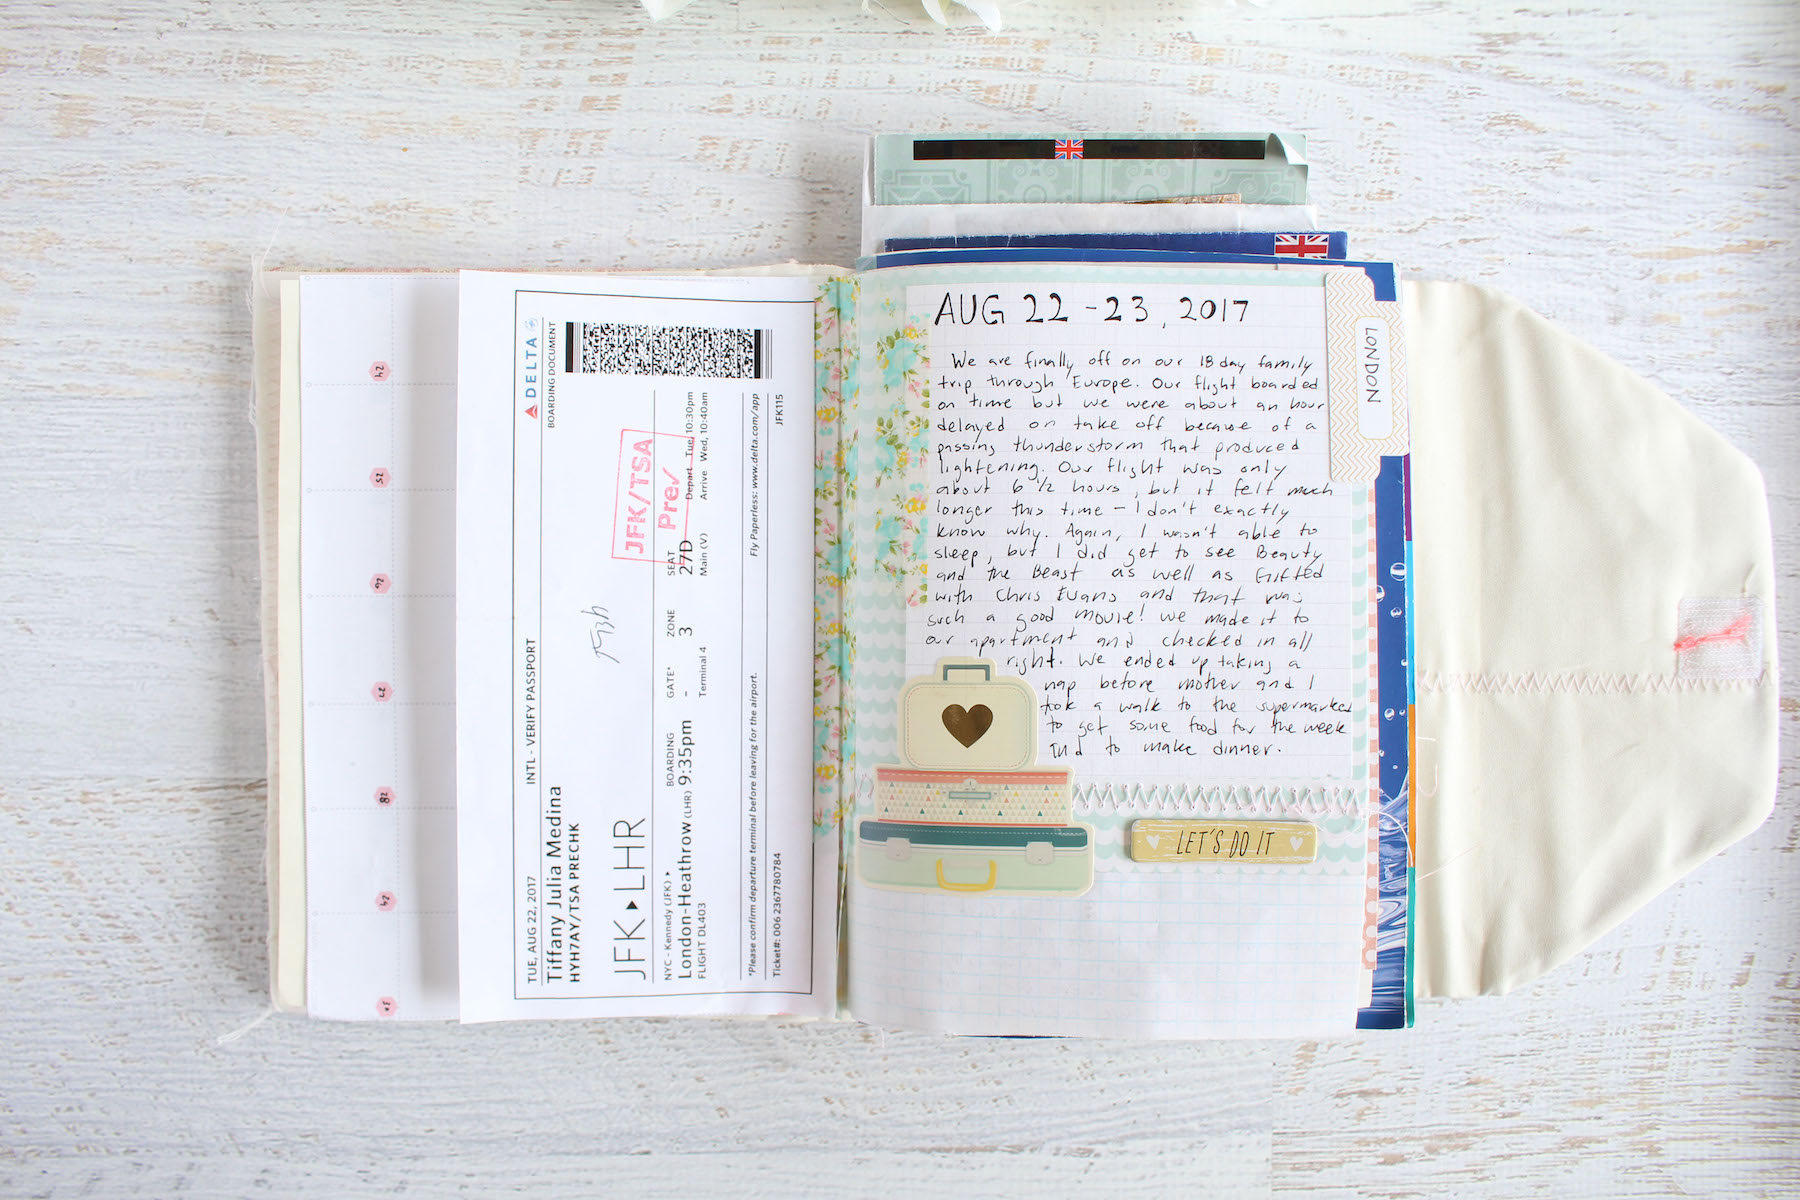 DELTA
BOARDING DOCUMENT
TUE, AUG 22, 2017 INTL - VERIFY PASSPORT
Tiffany Julia Medina
HYH7AY/TSA PRECHK
JFK/TSA
Pre✓
JFK▸LHR
NYC - Kennedy (JFK) ▸ BOARDING GATE* ZONE SEAT Depart Tue, 10:30pm
London-Heathrow (LHR) 9:35pm - 3 27D
FLIGHT DL403 Terminal 4 Main (V) Arrive Wed, 10:40am
*Please confirm departure terminal before leaving for the airport. Fly Paperless: www.delta.com/app
Ticket#: 006 2367780784 JFK115
24
25
26
27
28
29
AUG 22 - 23, 2017
We are finally off on our 18 day family
trip through Europe. Our flight boarded
on time but we were about an hour
delayed on take off because of a
passing thunderstorm that produced
lightening. Our flight was only
about 6 1/2 hours, but it felt much
longer this time – I don't exactly
know why. Again, I wasn't able to
sleep, but I did get to see Beauty
and the Beast as well as Gifted
with Chris Evans and that was
such a good movie! We made it to
our apartment and checked in all
right. We ended up taking a
nap before mother and I
took a walk to the supermarked
to get some food for the week
and to make dinner.
LONDON
LET'S DO IT